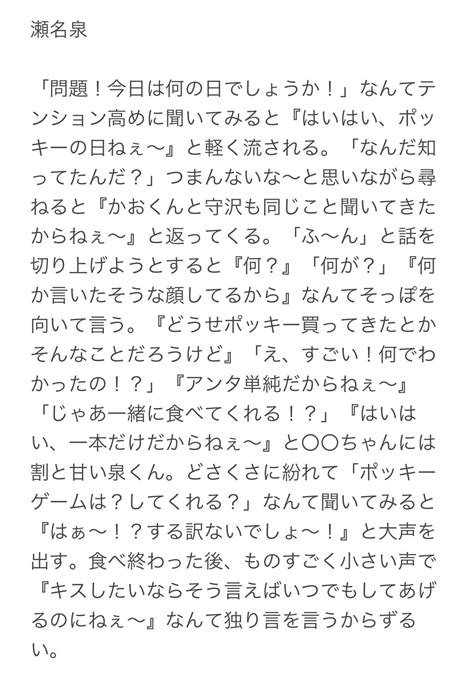 瀬名泉
「問題！今日は何の日でしょうか！」なんてテ
ンション高めに聞いてみると『はいはい、ポッ
キーの日ねぇ〜』と軽く流される。「なんだ知
ってたんだ？」つまんないな〜と思いながら尋
ねると『かおくんと守沢も同じこと聞いてきた
からねぇ〜』と返ってくる。「ふ〜ん」と話を
切り上げようとすると『何？』「何が？」『何
か言いたそうな顔してるから』なんてそっぽを
向いて言う。『どうせポッキー買ってきたとか
そんなことだろうけど』「え、すごい！何でわ
かったの！？」『アンタ単純だからねぇ〜』
「じゃあ一緒に食べてくれる！？」『はいは
い、一本だけだからねぇ〜』と〇〇ちゃんには
割と甘い泉くん。どさくさに紛れて「ポッキー
ゲームは？してくれる？」なんて聞いてみると
『はぁ〜！？する訳ないでしょ〜！』と大声を
出す。食べ終わった後、ものすごく小さい声で
『キスしたいならそう言えばいつでもしてあげ
るのにねぇ〜』なんて独り言を言うからずる
い。